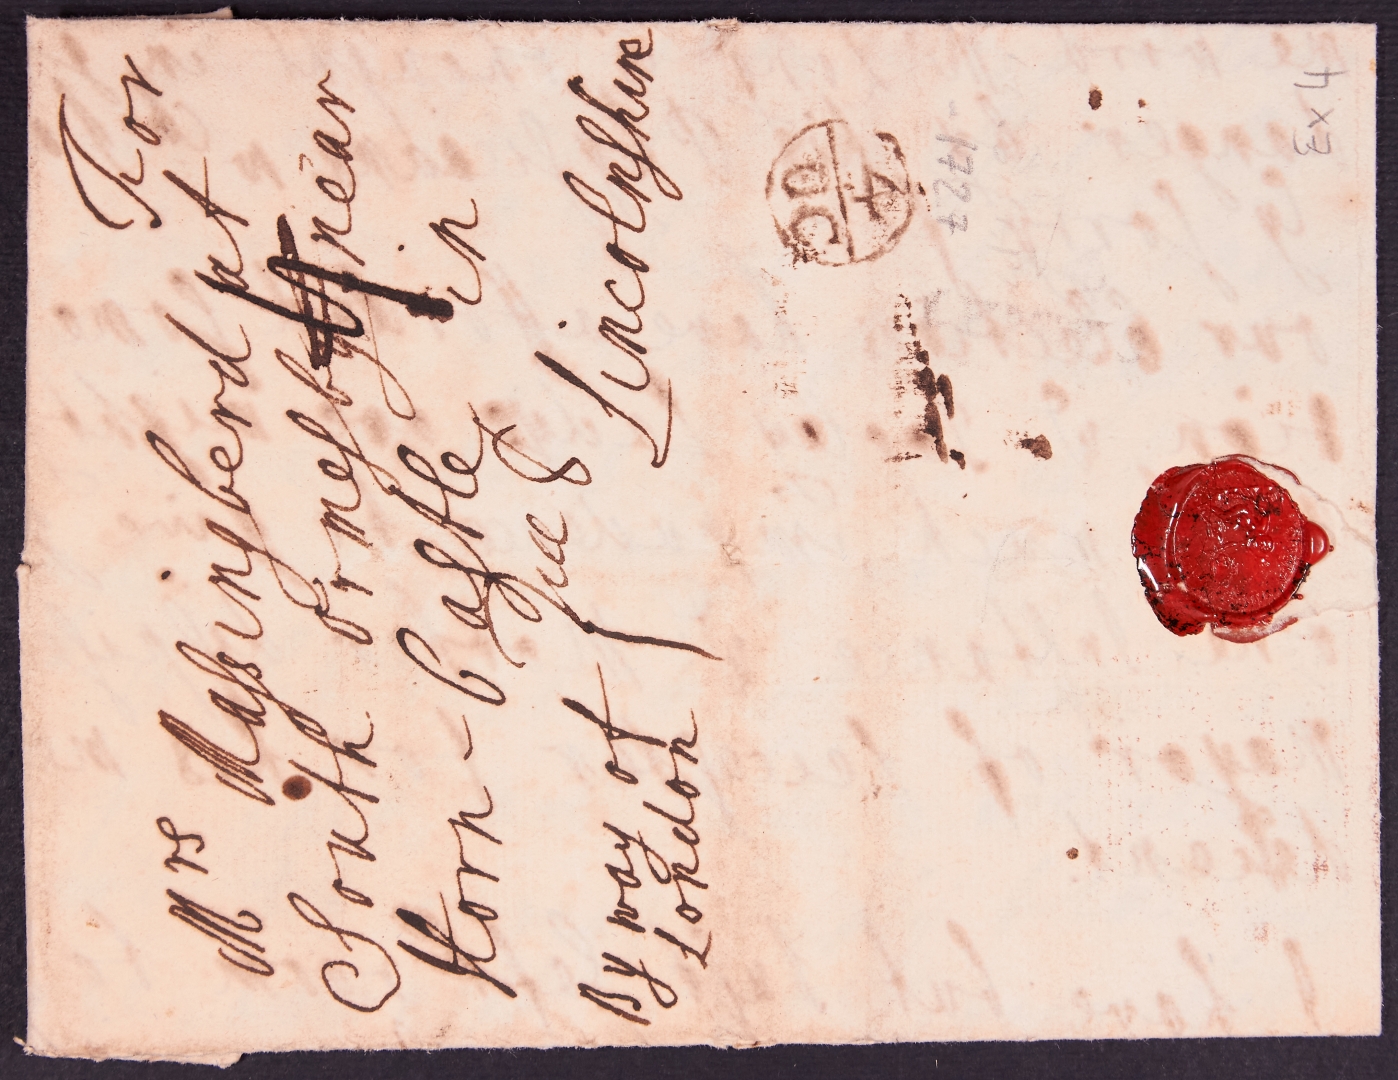 For
Mrs Massingberd att
South ormesby near
Horn-Castle in
Lincolnshire
By way of
London
4
DC
-1727
Ex 4